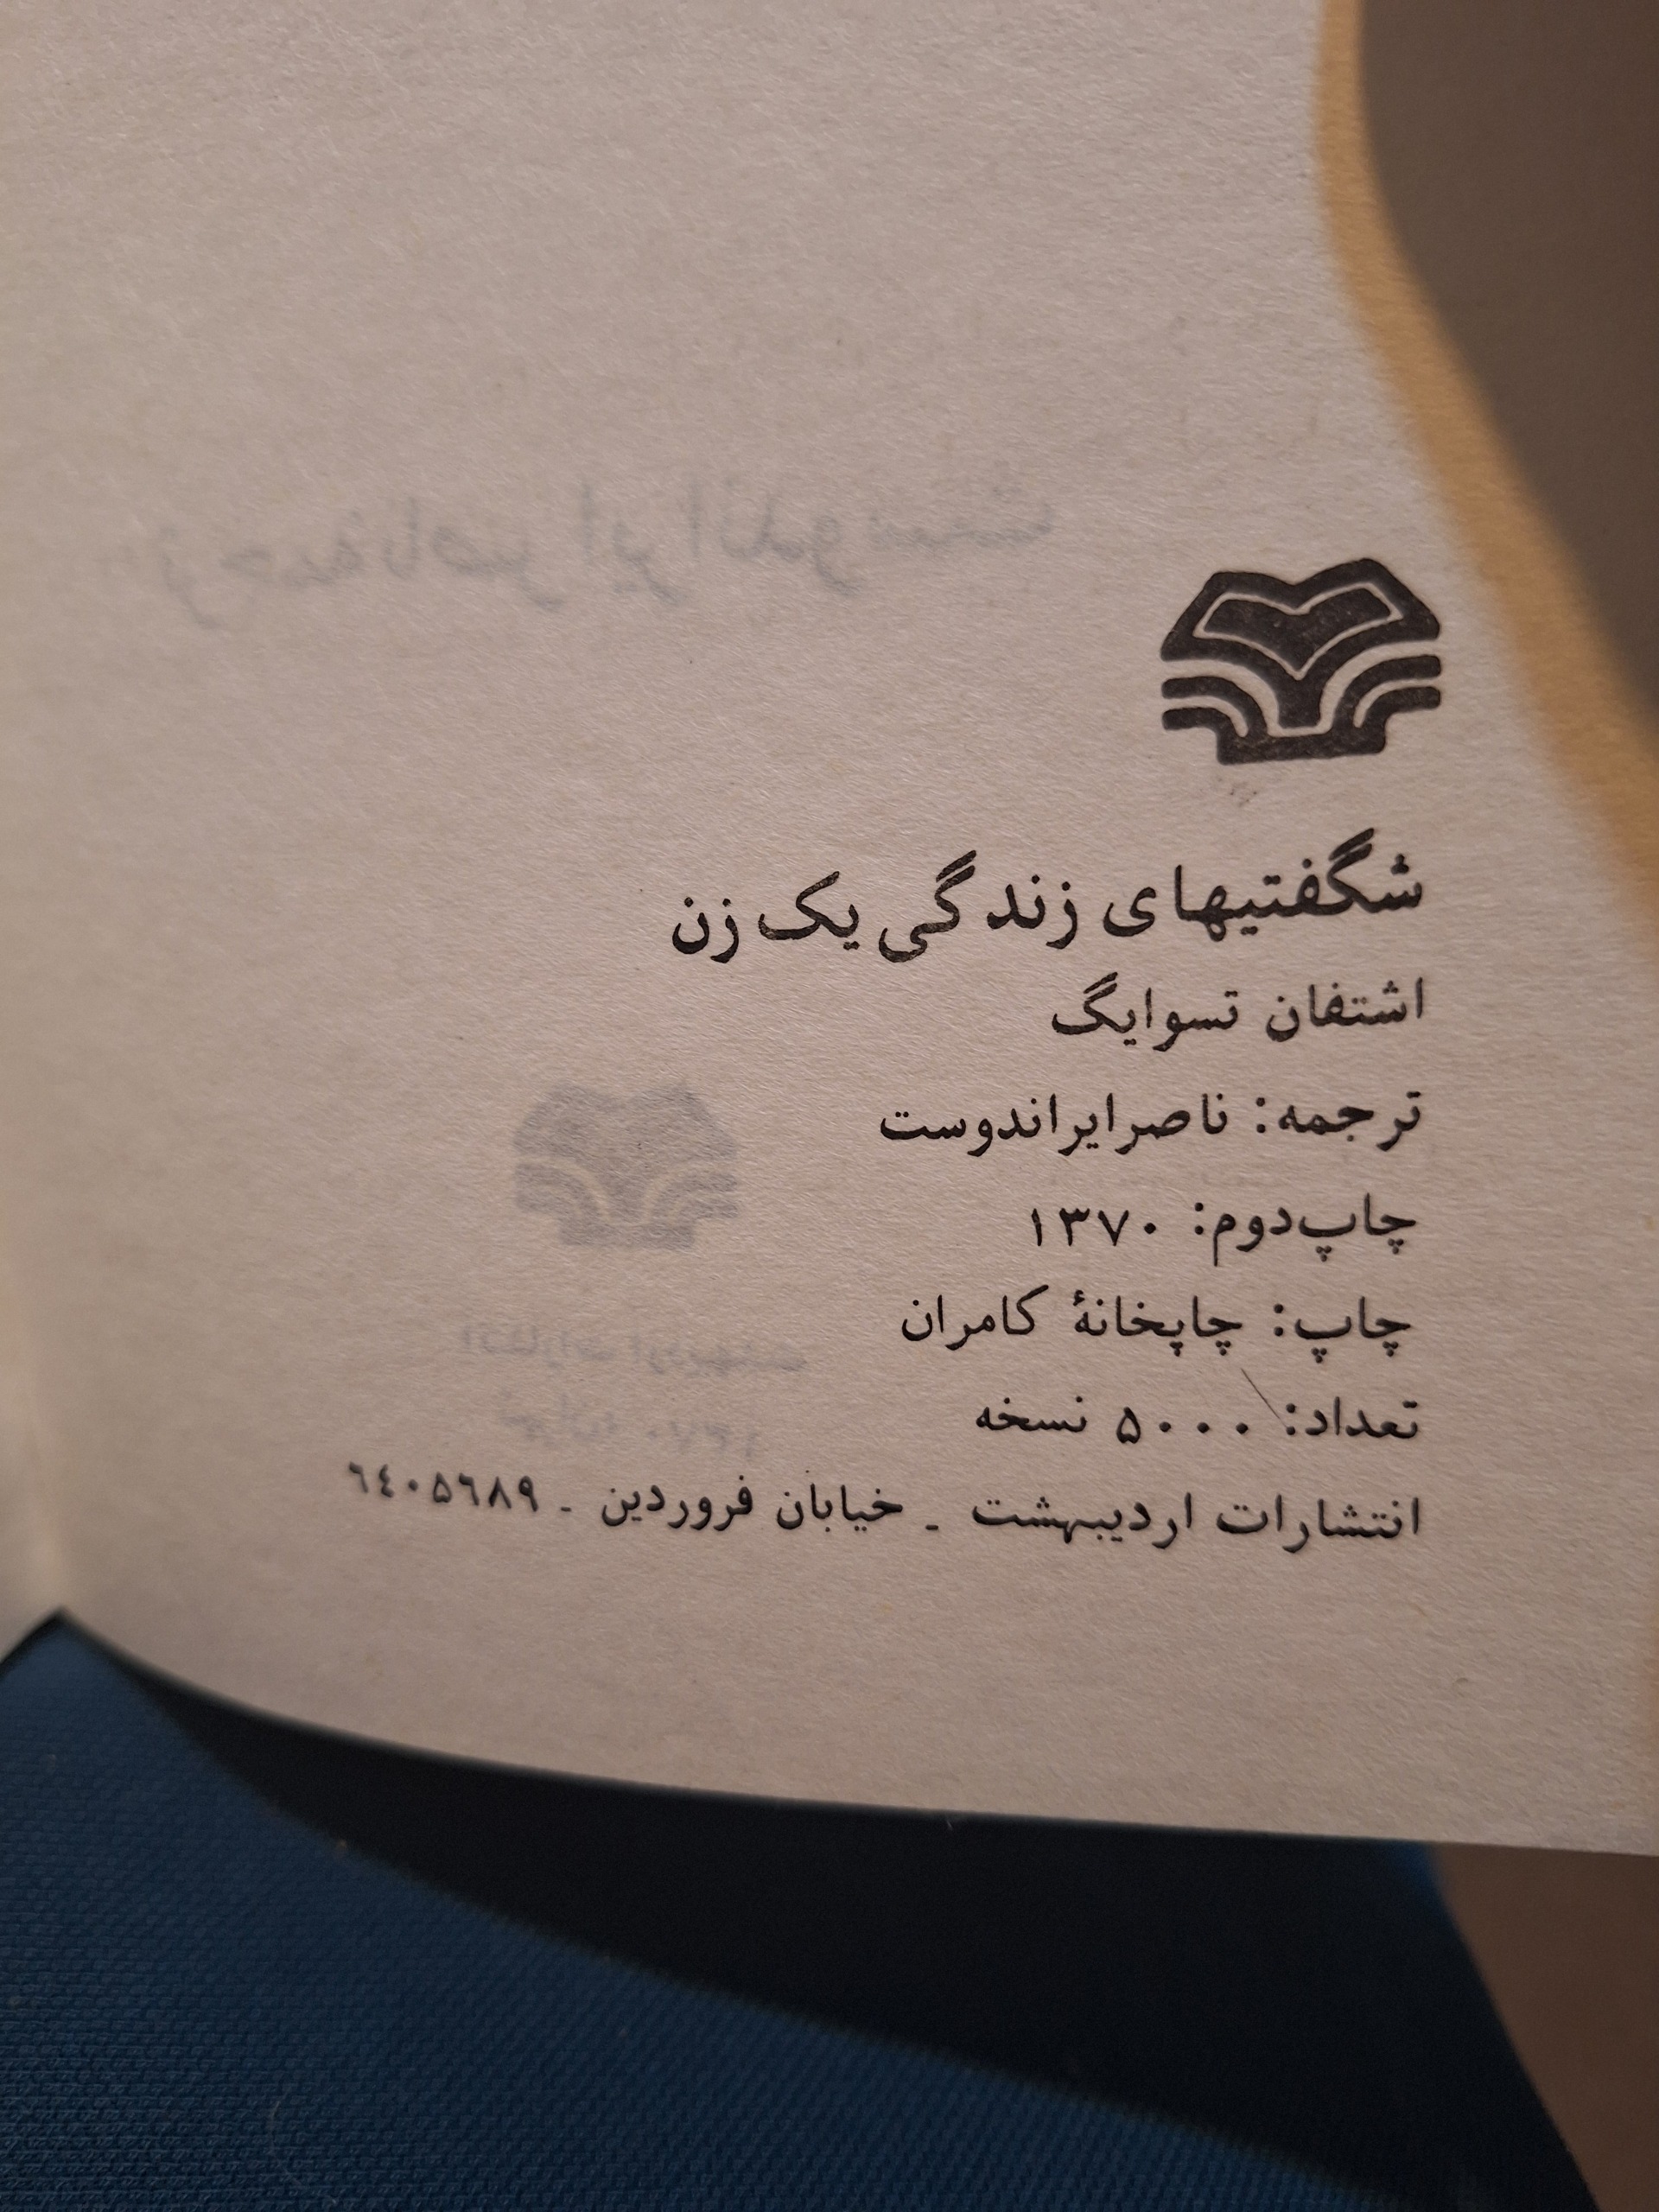 شگفتیهای زندگی یک زن
اشتفان تسوایگ
ترجمه: ناصر ایراندوست
چاپ دوم: ۱۳۷۰
چاپ: چاپخانهٔ کامران
تعداد: ۵۰۰۰ نسخه
انتشارات اردیبهشت - خیابان فروردین - ۶۴۰۵۶۸۹